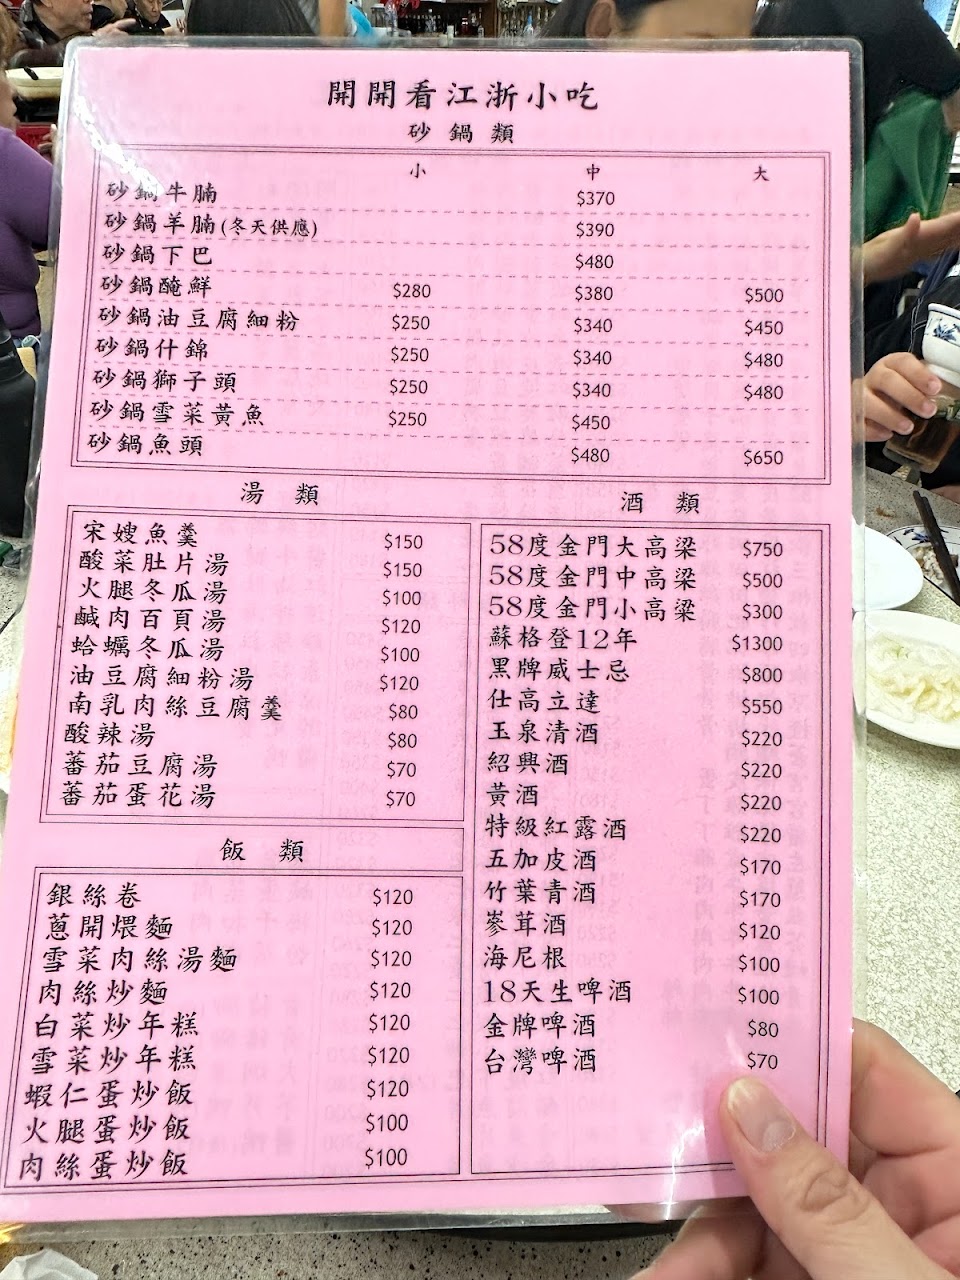 開開看江浙小吃
砂鍋類
小 中 大
砂鍋牛腩 $370
砂鍋羊腩(冬天供應) $390
砂鍋下巴 $480
砂鍋醃鮮 $280 $380 $500
砂鍋油豆腐細粉 $250 $340 $450
砂鍋什錦 $250 $340 $480
砂鍋獅子頭 $250 $340 $480
砂鍋雪菜黃魚 $250 $450
砂鍋魚頭 $480 $650
湯類
宋嫂魚羹 $150
酸菜肚片湯 $150
火腿冬瓜湯 $100
鹹肉百頁湯 $120
蛤蠣冬瓜湯 $100
油豆腐細粉湯 $120
南乳肉絲豆腐羹 $80
酸辣湯 $80
蕃茄豆腐湯 $70
蕃茄蛋花湯 $70
飯類
銀絲卷 $120
蔥開煨麵 $120
雪菜肉絲湯麵 $120
肉絲炒麵 $120
白菜炒年糕 $120
雪菜炒年糕 $120
蝦仁蛋炒飯 $120
火腿蛋炒飯 $100
肉絲蛋炒飯 $100
酒類
58度金門大高梁 $750
58度金門中高梁 $500
58度金門小高梁 $300
蘇格登12年 $1300
黑牌威士忌 $800
仕高立達 $550
玉泉清酒 $220
紹興酒 $220
黃酒 $220
特級紅露酒 $220
五加皮酒 $170
竹葉青酒 $170
蔘茸酒 $120
海尼根 $100
18天生啤酒 $100
金牌啤酒 $80
台灣啤酒 $70